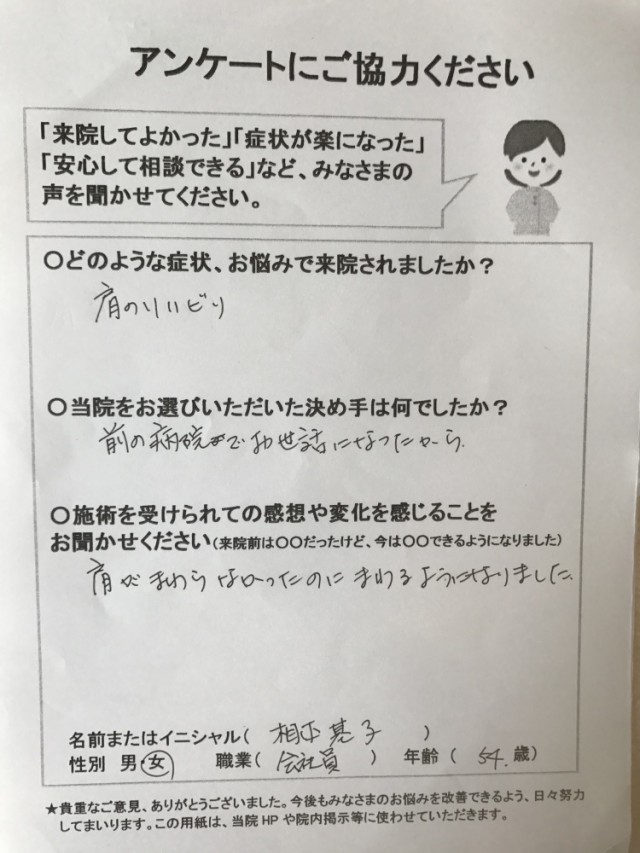 アンケートにご協力ください
「来院してよかった」「症状が楽になった」
「安心して相談できる」など、みなさまの
声を聞かせてください。
〇どのような症状、お悩みで来院されましたか？
肩のリハビリ
〇当院をお選びいただいた決め手は何でしたか？
前の病院でお世話になったから
〇施術を受けられての感想や変化を感じることを
お聞かせください（来院前は〇〇だったけど、今は〇〇できるようになりました）
肩がまわらなかったのにまわるようになりました。
名前またはイニシャル（ 子 ）
性別 男・女 職業（ 会社員 ） 年齢（ 54. 歳）
★貴重なご意見、ありがとうございました。今後もみなさまのお悩みを改善できるよう、日々努力
してまいります。この用紙は、当院HPや院内掲示等に使わせていただきます。